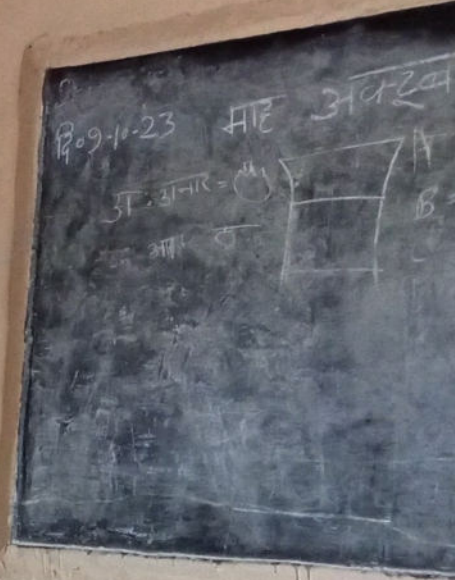 दि०09-10-23 माह अक्टूब
अ : अनार =
आम
A
B =